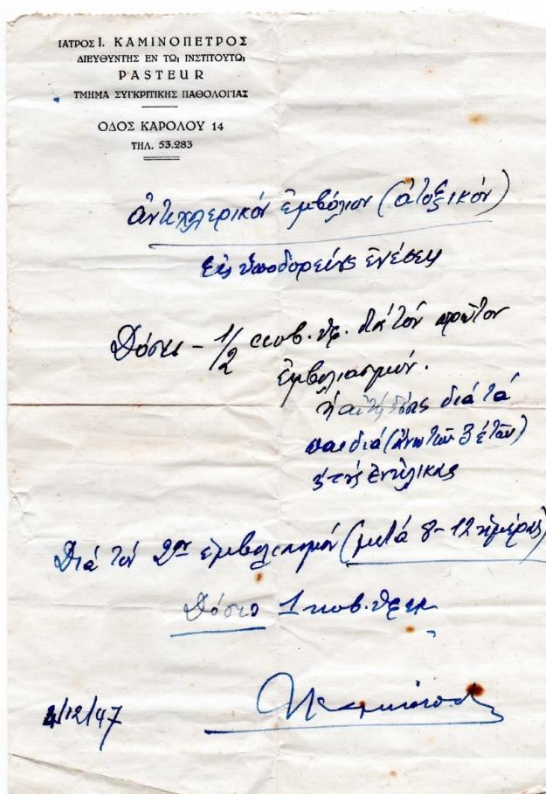 ΙΑΤΡΟΣ Ι. ΚΑΜΙΝΟΠΕΤΡΟΣ
ΔΙΕΥΘΥΝΤΗΣ ΕΝ ΤΩι ΙΝΣΤΙΤΟΥΤΩι
PASTEUR
ΤΜΗΜΑ ΣΥΓΚΡΙΤΙΚΗΣ ΠΑΘΟΛΟΓΙΑΣ
ΟΔΟΣ ΚΑΡΟΛΟΥ 14
ΤΗΛ. 53.283
ἀντιχολερικόν ἐμβόλιον (ἀτοξικόν)
Εἰς ὑποδορείους ἐνέσεις
Δόσις - 1/2 κυβ. ὑφ. διά τόν πρῶτον
ἐμβολιασμόν.
ἡ αὐτή δόσις διά τά
παιδιά (ἄνω τῶν 3 ἐτῶν)
ἐνήλικας
Διά τόν 2ον ἐμβολιασμόν (μετά 8-12 ἡμέρας)
Δόσις 1 κυβ.
4/12/47